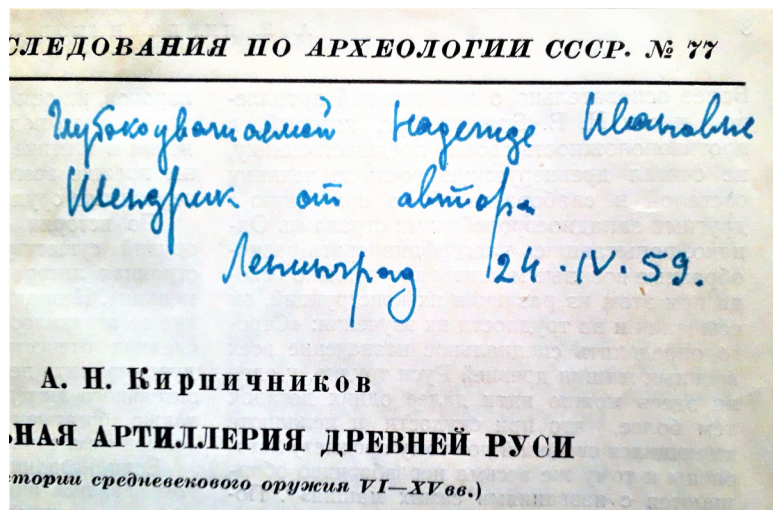 СЛЕДОВАНИЯ ПО АРХЕОЛОГИИ СССР. № 77
Глубокоуважаемой Надежде Ивановне
Шендрик от автора
Ленинград 24.IV.59.
А. Н. Кирпичников
ЬНАЯ АРТИЛЛЕРИЯ ДРЕВНЕЙ РУСИ
стории средневекового оружия VI—XV вв.)